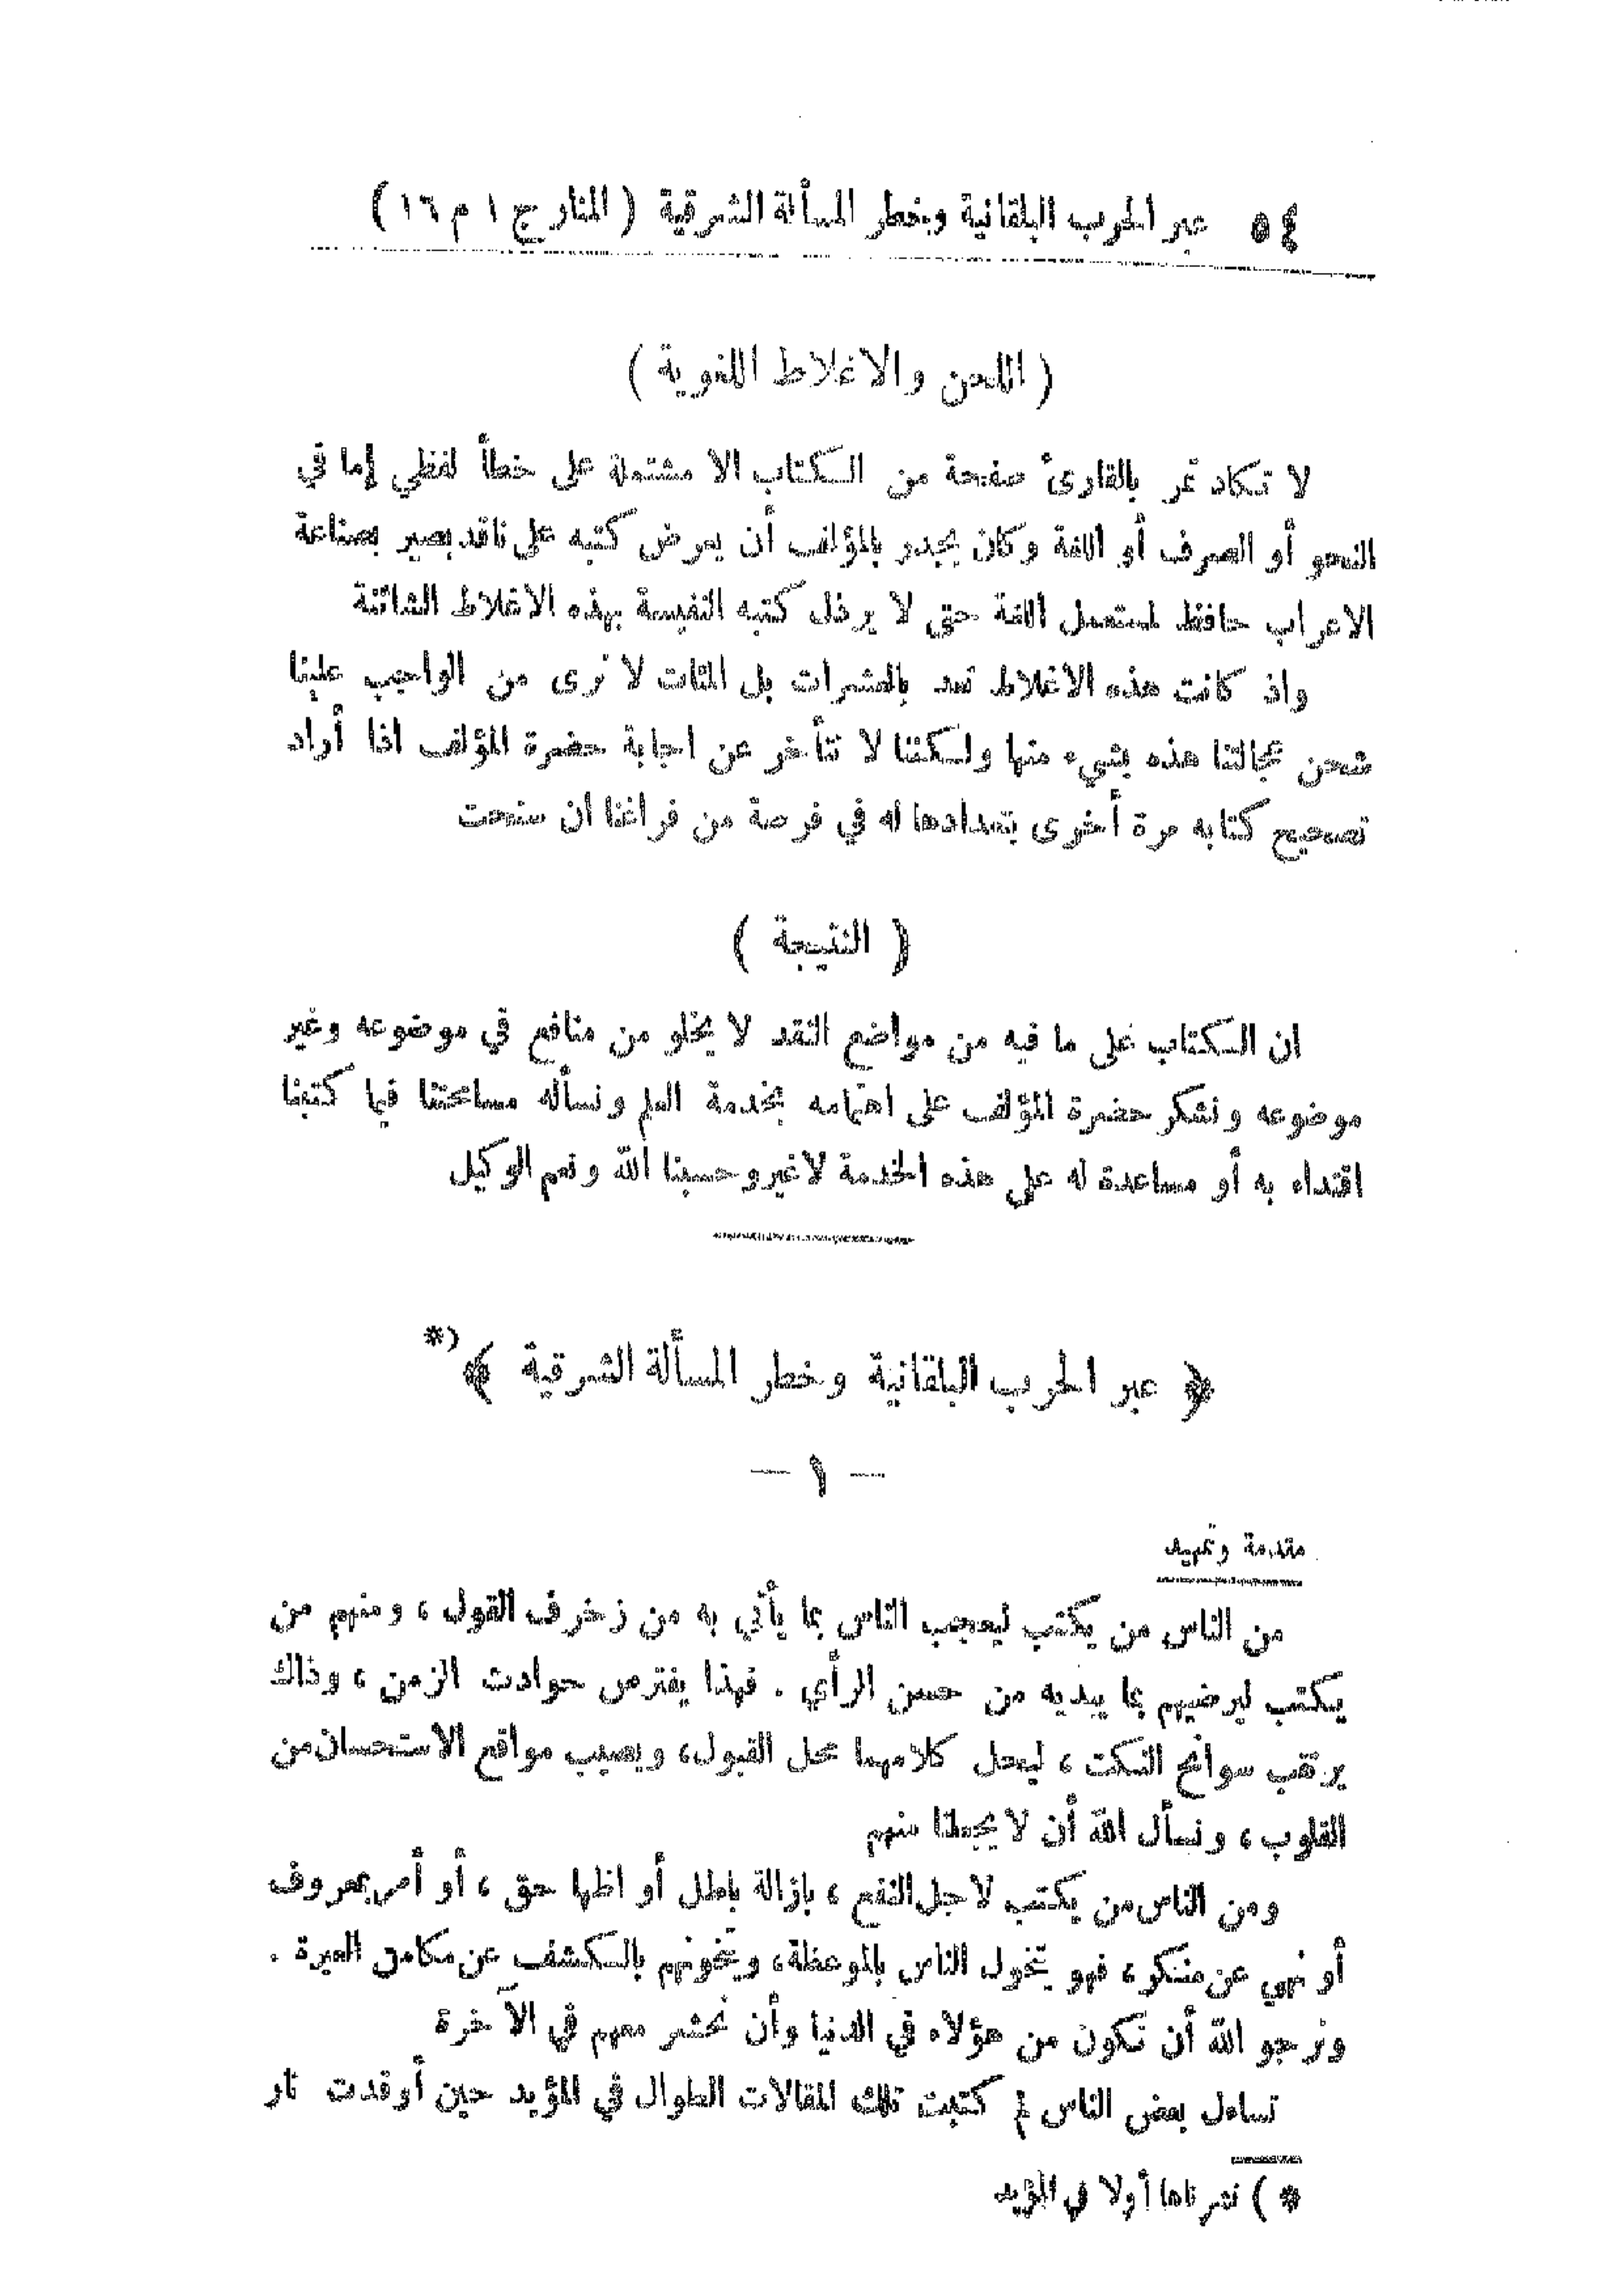 ٥٤ عبر الحرب البلقانية وخطر المسألة الشرقية ( المنار ج ١ م ١٦ )
( اللحن والاغلاط اللغوية )
لا تكاد تمر بالقارئ صفحة من الكتاب الا مشتملة على خطأ لفظي إما في
النحو أو الصرف أو اللغة وكان يجدر بالمؤلف أن يعرض كتبه على ناقد بصير بصناعة
الاعراب حافظ لمستعمل اللغة حتى لا يرفل كتبه النفيسة بهذه الاغلاط الشائنة
واذ كانت هذه الاغلاط تعد بالعشرات بل المئات لا نرى من الواجب علينا
شحن عجالتنا هذه بشيء منها ولكننا لا نتأخر عن اجابة حضرة المؤلف اذا أراد
تصحيح كتابه مرة أخرى بتعدادها له في فرصة من فراغنا ان سنحت
( النتيجة )
ان الكتاب على ما فيه من مواضع النقد لا يخلو من منافع في موضوعه وغير
موضوعه ونشكر حضرة المؤلف على اهتمامه بخدمة العلم ونسأله مسامحتنا فيما كتبنا
اقتداء به أو مساعدة له على هذه الخدمة لاغير وحسبنا الله ونعم الوكيل
﴿ عبر الحرب البلقانية وخطر المسألة الشرقية ﴾ *)
— ١ —
مقدمة وتمهيد
من الناس من يكتب ليعجب الناس بما يأتي به من زخرف القول ، ومنهم من
يكتب ليرضيهم بما يبديه من حسن الرأي . فهذا يفترص حوادث الزمن ، وذاك
يرقب سوانح النكت ، ليحل كلامهما محل القبول، ويصيب مواقع الاستحسان من
القلوب ، ونسأل الله أن لا يجعلنا منهم
ومن الناس من يكتب لاجل النفع ، بازالة باطل أو اظها حق ، أو أمر بمعروف
أو نهي عن منكر ، فهو يتخول الناس بالموعظة، ويتخونهم بالكشف عن مكامن العبرة .
ونرجو الله أن نكون من هؤلاء في الدنيا وأن نحشر معهم في الآخرة
تساءل بعض الناس لم كتبت تلك المقالات الطوال في المؤيد حين أوقدت نار
* ) نشرناها أولا في المؤيد